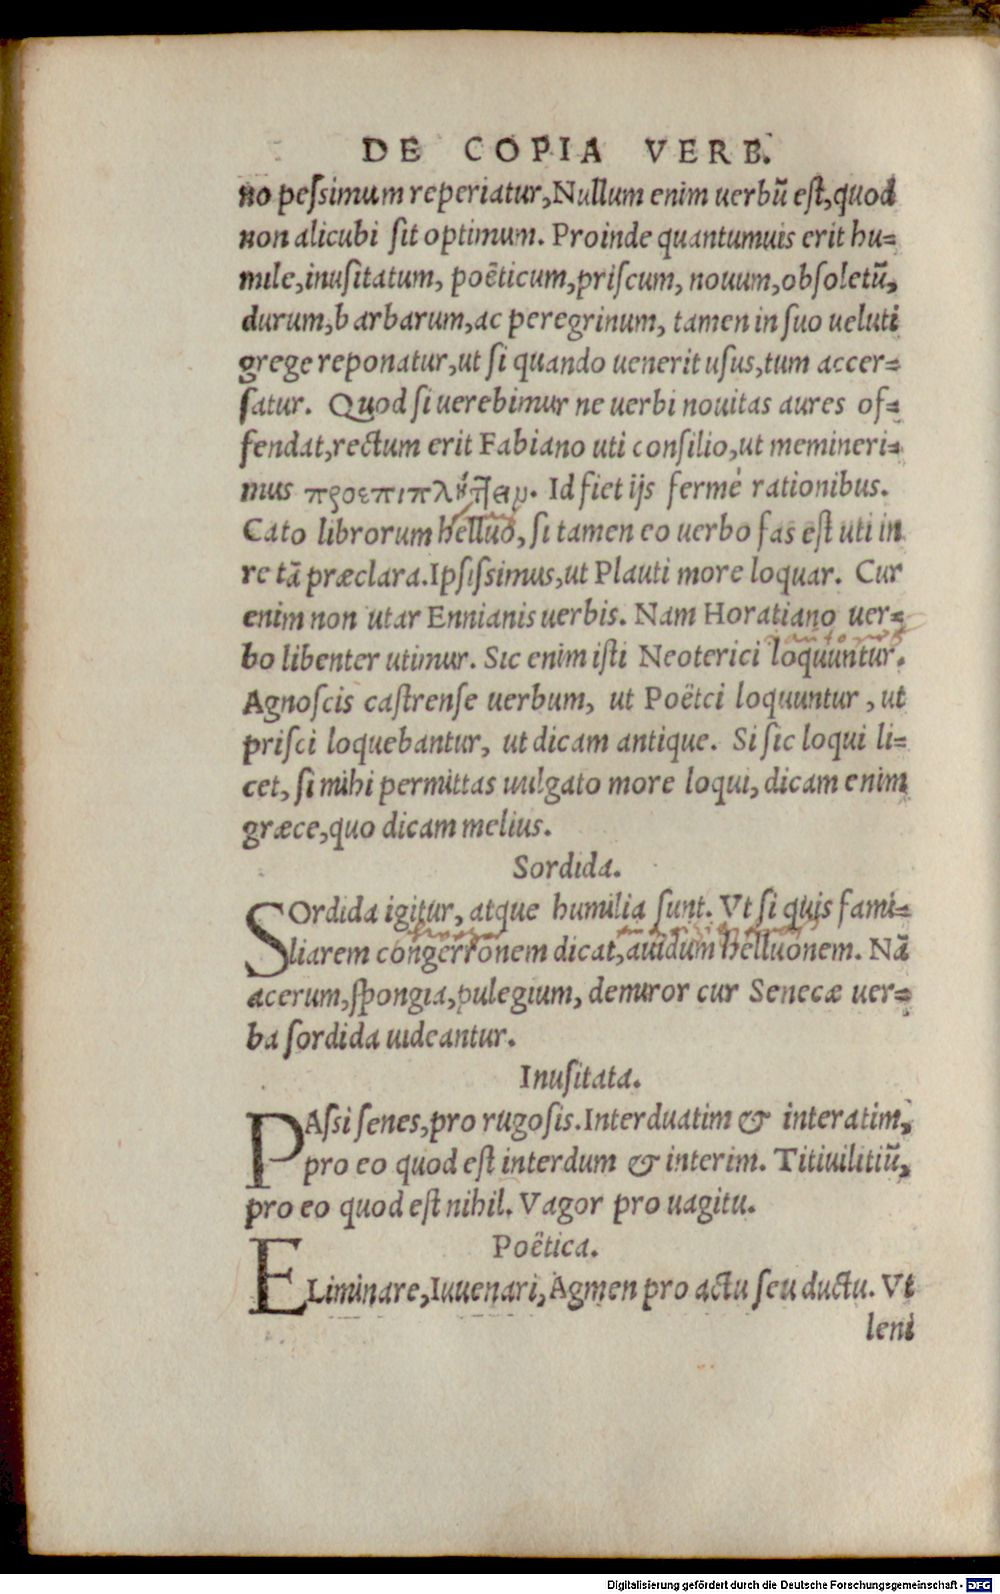 DE COPIA VERB.
no peſsimum reperiatur, Nullum enim uerbū eſt, quod
non alicubi ſit optimum. Proinde quantumuis erit hu-
mile, inuſitatum, poëticum, priſcum, nouum, obſoletū,
durum, barbarum, ac peregrinum, tamen in ſuo ueluti
grege reponatur, ut ſi quando uenerit uſus, tum accer-
ſatur. Quod ſi uerebimur ne uerbi nouitas aures of-
fendat, rectum erit Fabiano uti conſilio, ut memineri-
mus . Id fiet ijs fermè rationibus.
Cato librorum helluo, ſi tamen eo uerbo fas eſt uti in
re tā præclara. Ipſiſsimus, ut Plauti more loquar. Cur
enim non utar Ennianis uerbis. Nam Horatiano uer-
bo libenter utimur. Sic enim iſti Neoterici loquuntur.
Agnoſcis caſtrenſe uerbum, ut Poëtci loquuntur, ut
priſci loquebantur, ut dicam antique. Si ſic loqui li-
cet, ſi mihi permittas uulgato more loqui, dicam enim
græce, quo dicam melius.
Sordida.
SOrdida igitur, atque humilia ſunt. Vt ſi quis fami-
liarem congerronem dicat, auidum helluonem. Nā
acerum, ſpongia, pulegium, demiror cur Senecæ uer-
ba ſordida uideantur.
Inuſitata.
PAſsi ſenes, pro rugoſis. Interduatim & interatim,
pro eo quod eſt interdum & interim. Titiuilitiū,
pro eo quod eſt nihil. Vagor pro uagitu.
Poëtica.
ELiminare, Iuuenari, Agmen pro actu ſeu ductu. Vt
leni
Digitalisierung gefördert durch die Deutsche Forschungsgemeinschaft - DFG